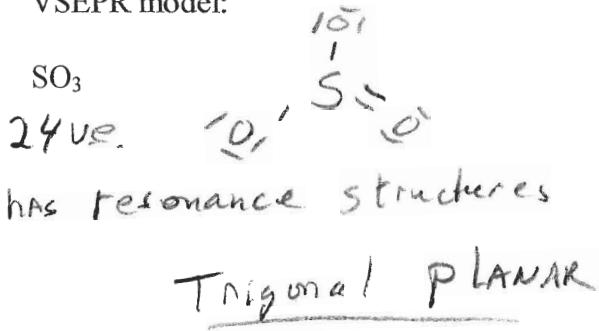 VSEPR model:
SO₃
24 ve.
|O|
S
|O| O
has resonance structures
Trigonal PLANAR